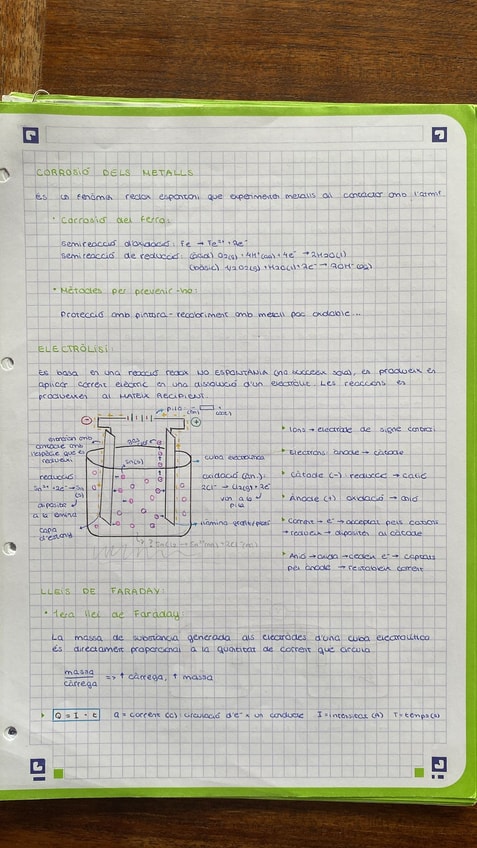 CORROSIÓ DELS METALLS
És un fenòmen redox espontani que experimenten metalls al contactar amb l'atmsf.
• Corrosió del Ferro:
semireacció d'oxidació: Fe → Fe²⁺ + 2e⁻
semireacció de reducció: (àcid) O₂(g) + 4H⁺(aq) + 4e⁻ → 2H₂O(l)
(bàsic) 1/2 O₂(g) + H₂O(l) + 2e⁻ → 2OH⁻(aq)
• Mètodes per prevenir-ho:
Protecció amb pintura - recobriment amb metall poc oxidable...
ELECTRÒLISI:
Es basa en una reacció redox NO ESPONTÀNIA (no succeeix sola), es produeix en
aplicar corrent elèctric en una dissolució d'un electròlit. Les reaccions es
produeixen al MATEIX RECIPIENT.
pila:
elèctron amb
contacte amb
l'espècie que es
redueix
Sn(s)
cuba electrolítica
reducció
Sn²⁺ + 2e⁻ → Sn
(s)
diposita
a la làmina
capa
d'estany
oxidació (àn.):
2Cl⁻ → Cl₂(g) + 2e⁻
van a la
pila
làmina grafit/pols
• Ions → elèctrode de signe contrari
• Electrons: ànode → càtode
• Càtode (-): reducció → catió
• Ànode (+): oxidació → anió
• Corrent → e⁻ → acceptat pels cations
→ redueix → dipositen al càtode
• Anió → oxida → cedeix e⁻ → captats
per ànode → restableix corrent
LLEIS DE FARADAY:
• 1era llei de Faraday:
La massa de substància generada als elèctrodes d'una cuba electrolítica
és directament proporcional a la quantitat de corrent que circula
massa
càrrega => ↑ càrrega, ↑ massa
Q = I · t Q = corrent (C) circulació d'e⁻ x un conductor I = intensitat (A) T = temps (s)